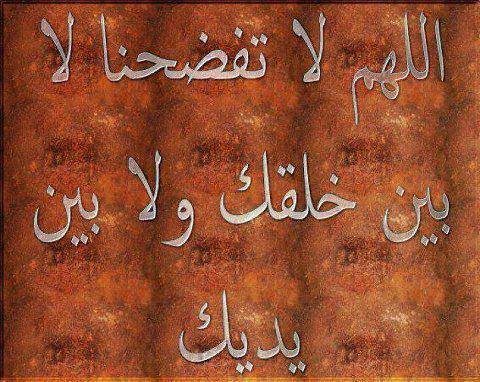 اللهم لا تفضحنا لا
بين خلقك ولا بين
يديك